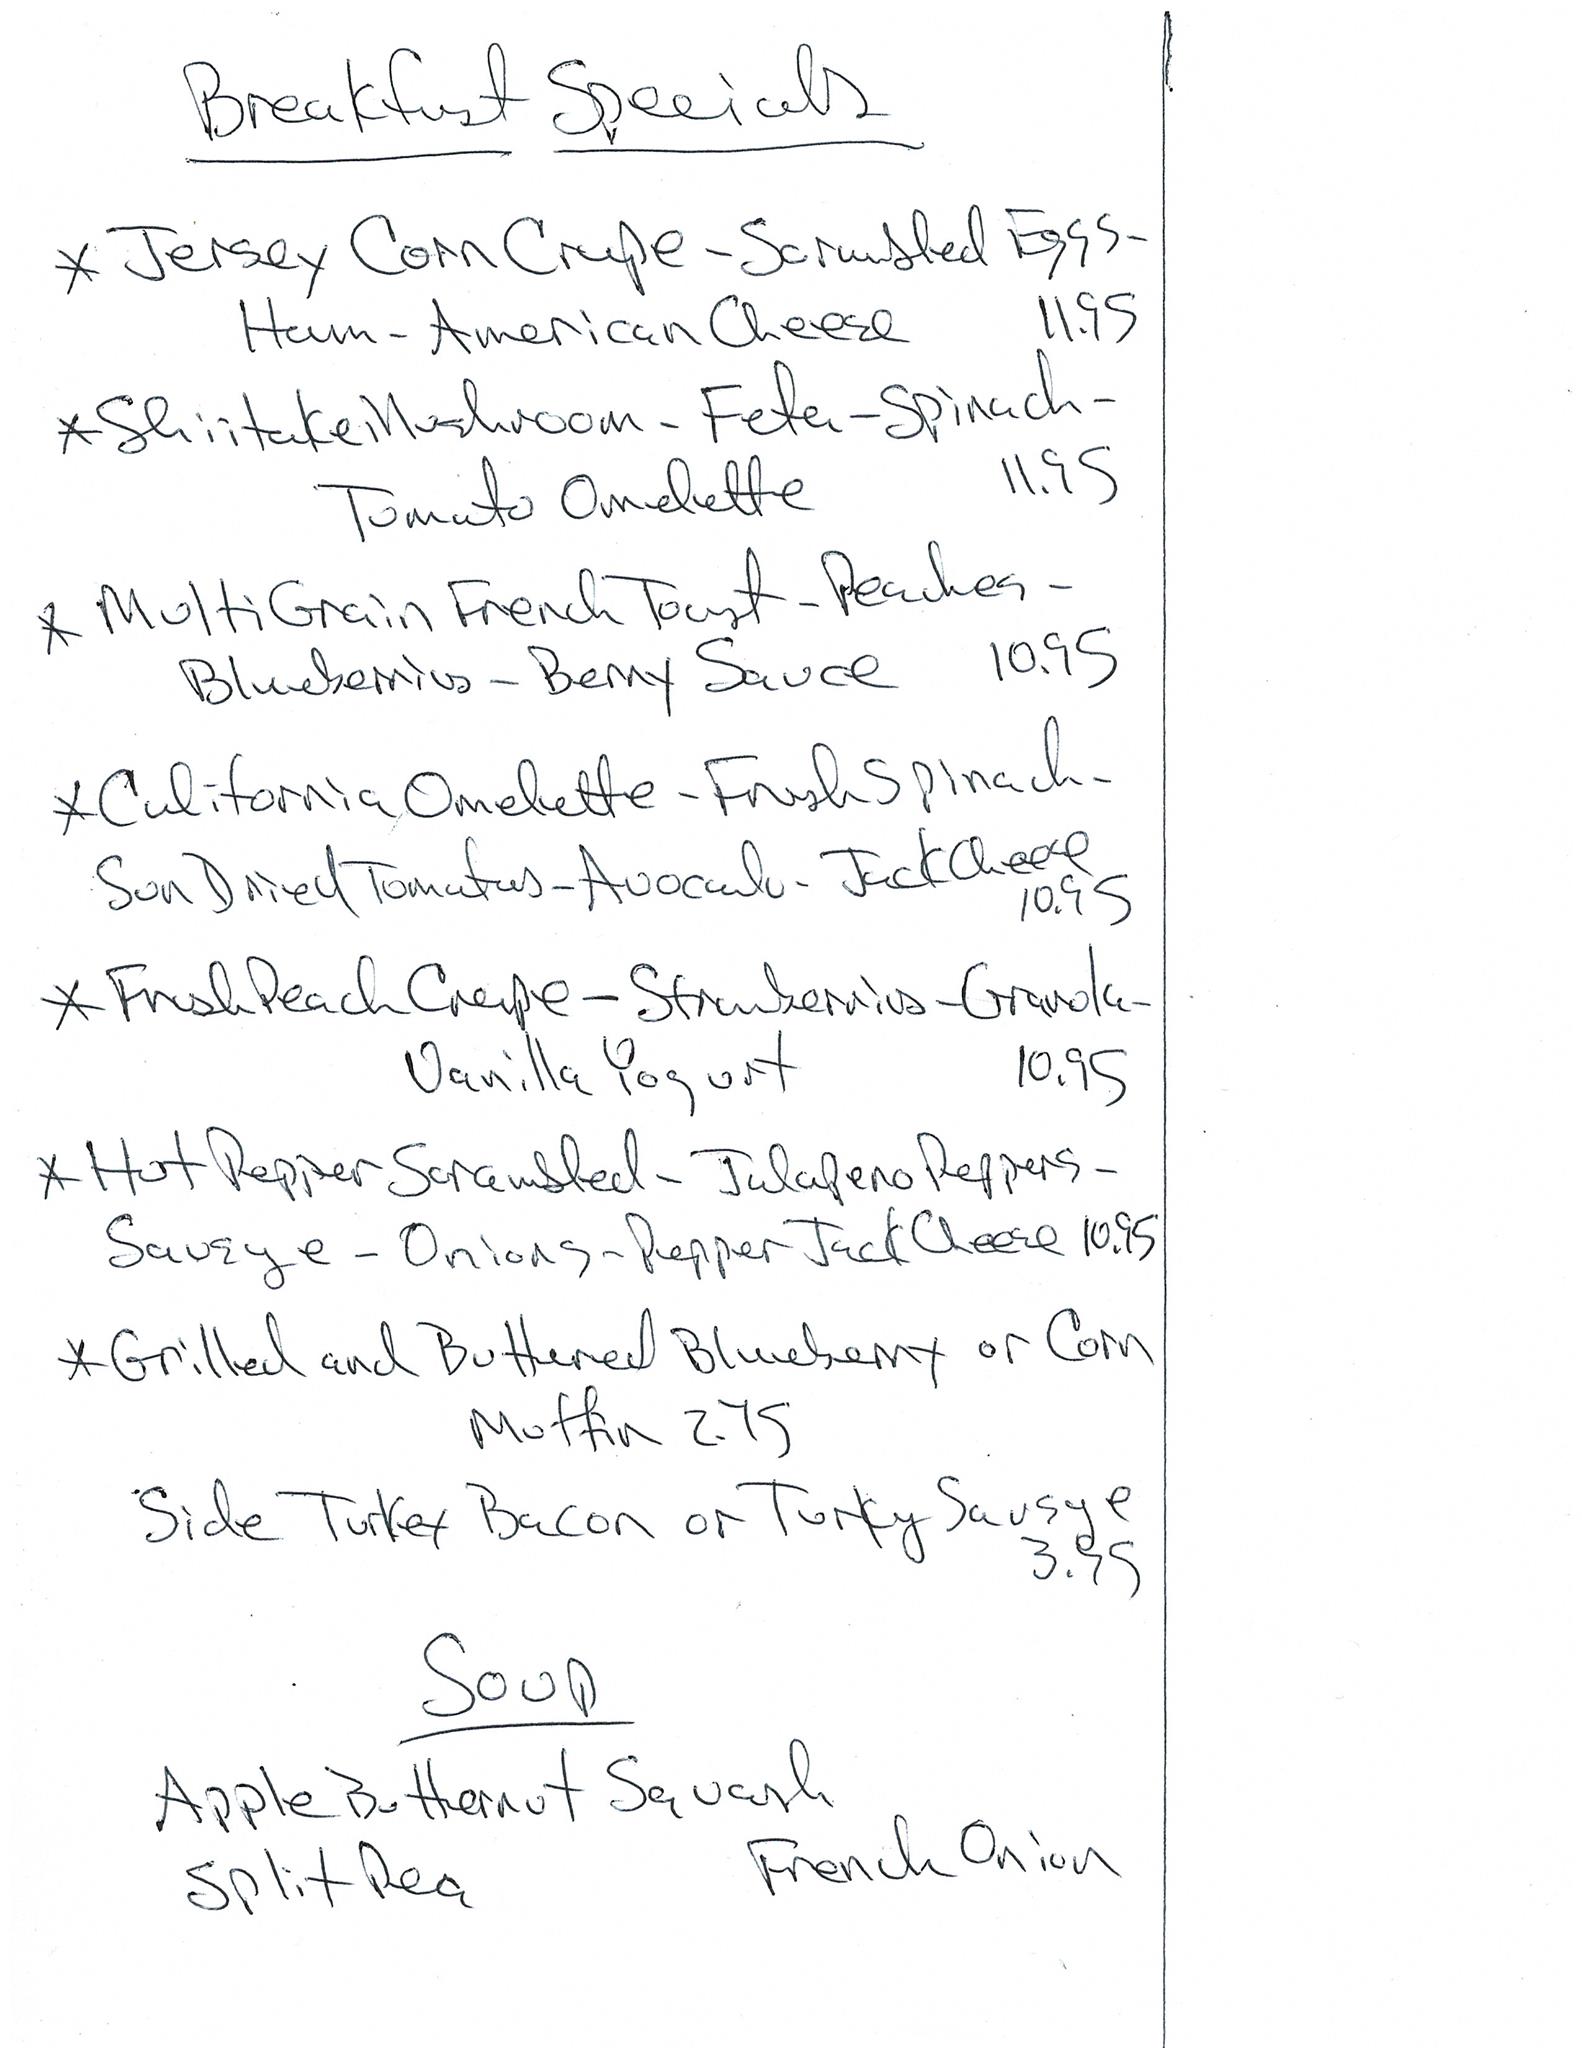 Breakfast Specials
* Jersey Corn Crepe - Scrambled Eggs -
Ham - American Cheese 11.95
* Shiitake Mushroom - Feta - Spinach -
Tomato Omelette 11.95
* Multi Grain French Toast - Peaches -
Blueberries - Berry Sauce 10.95
* California Omelette - Fresh Spinach -
Sun Dried Tomatoes - Avocado - Jack Cheese
10.95
* Fresh Peach Crepe - Strawberries - Granola -
Vanilla Yogurt 10.95
* Hot Pepper Scrambled - Jalapeno Peppers -
Sausage - Onions - Pepper Jack Cheese 10.95
* Grilled and Buttered Blueberry or Corn
Muffin 2.75
Side Turkey Bacon or Turky Sausage
3.95
Soup
Apple Butternut Squash
Split Pea French Onion